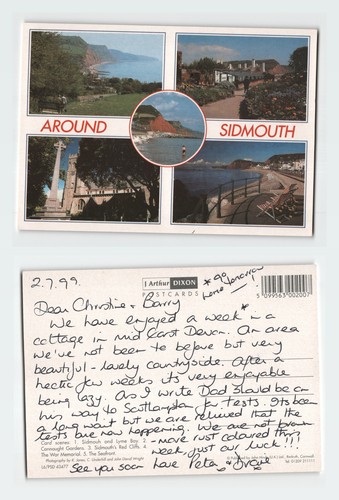 AROUND SIDMOUTH
2.7.99.
J Arthur DIXON
POSTCARDS
* go
home tomorrow!
5 099563 002007
Dear Christine & Barry
We have enjoyed a week * in a
cottage in mid East Devon. An area
we've not been to before but very
beautiful - lovely countryside. After a
hectic few weeks it's very enjoyable
being lazy. As I write Dad should be on
his way to Southampton for tests. Its been
a long wait but we are relieved that the
tests are now happening. We are not brown
- more rust coloured this
week just our luck!!!
See you soon love Pete &
Card scenes: 1. Sidmouth and Lyme Bay. 2.
Connaught Gardens. 3. Sidmouth's Red Cliffs. 4.
The War Memorial. 5. The Seafront.